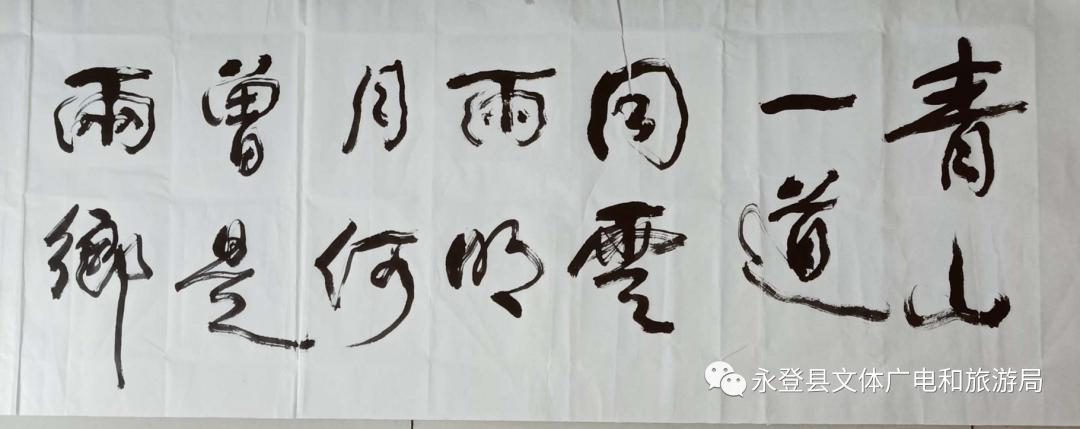 青山
一道
同雲
雨明
月何
曾是
兩鄉
永登县文体广电和旅游局